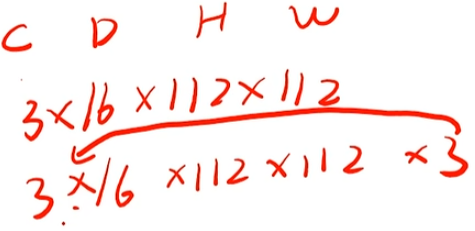 C D H W
3×16×112×112
3×16×112×112×3